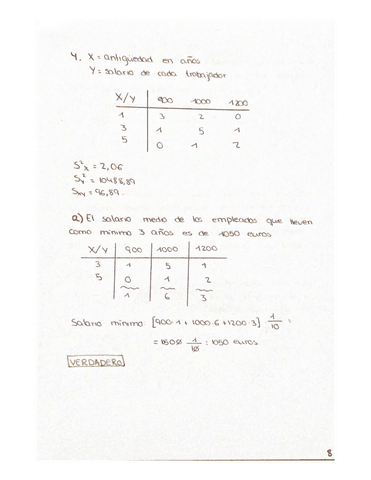 4. X = antigüedad en años
Y = salario de cada trabajador
X/Y 900 1000 1200
1 3 2 0
3 1 5 1
5 0 1 2
S²x = 2,06
S²y = 10488,89
Sxy = 96,89.
a) El salario medio de los empleados que lleven
como mínimo 3 años es de 1050 euros
X/Y 900 1000 1200
3 1 5 1
5 0 1 2
1 6 3
Salario mínimo [900·1 + 1000·6 + 1200·3] 1/10 =
= 10500 1/10 = 1050 euros
VERDADERO
8